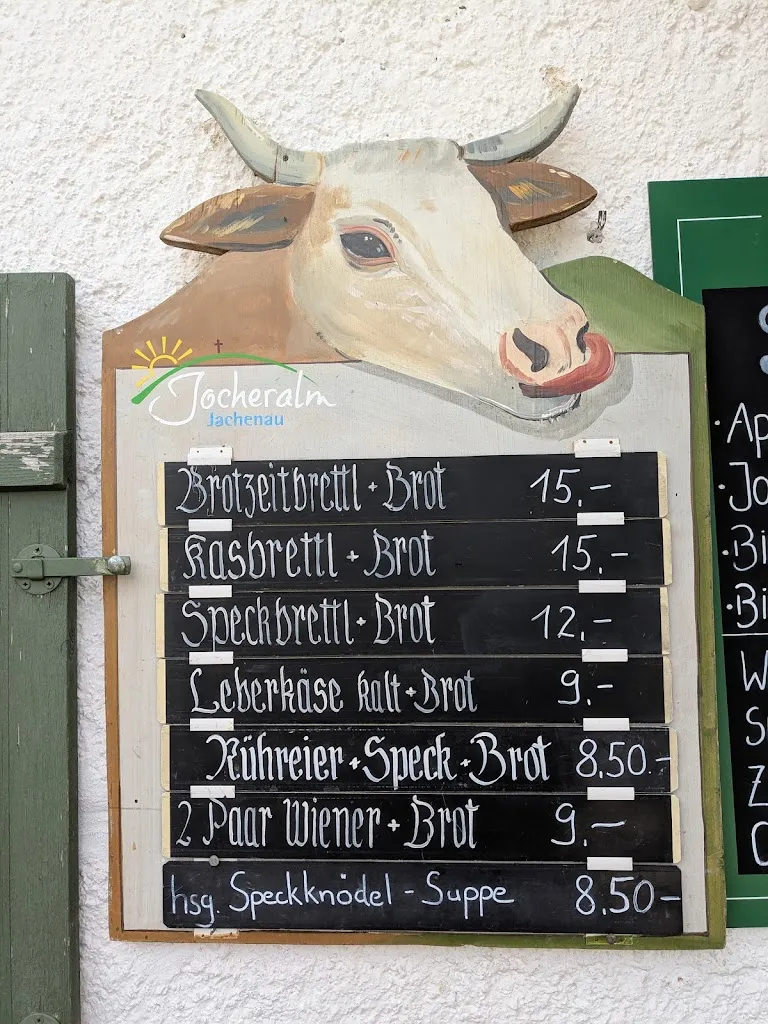 Jocheralm
Jachenau
Brotzeitbrettl + Brot 15.-
Kasbrettl + Brot 15.-
Speckbrettl + Brot 12.-
Leberkäse kalt + Brot 9.-
Rühreier + Speck + Brot 8.50.-
2 Paar Wiener + Brot 9.-
hsg. Speckknödel - Suppe 8.50-